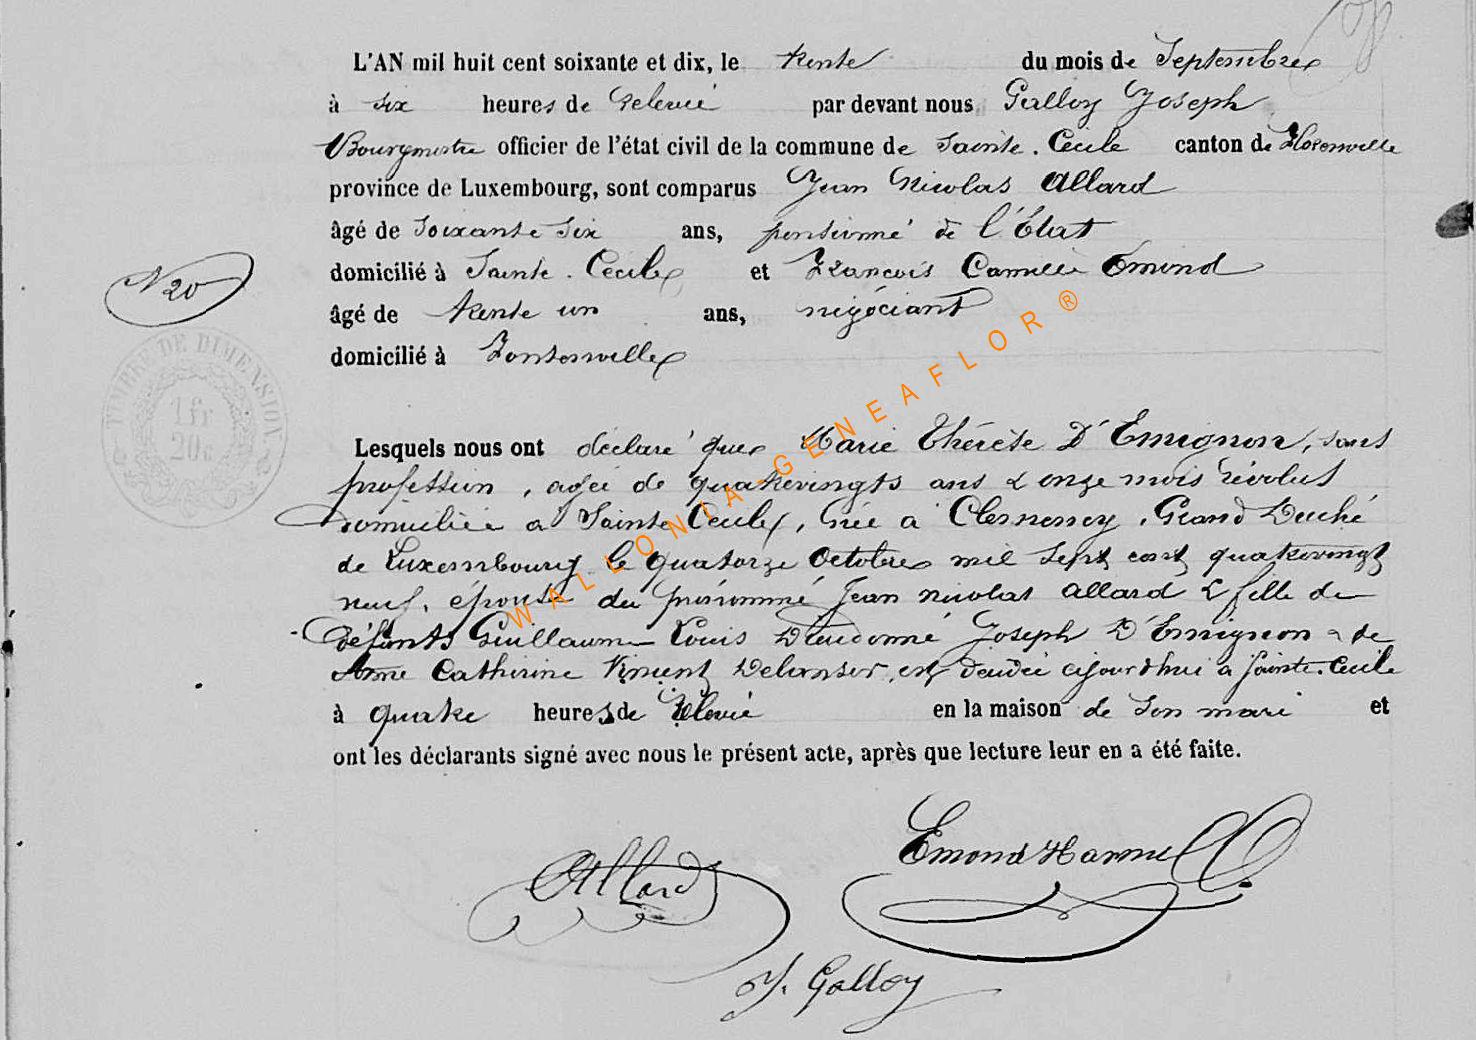 L'AN mil huit cent soixante et dix, le trente du mois de Septembre
à six heures de relevée par devant nous Galloy Joseph
Bourgmestre officier de l'état civil de la commune de Sainte-Cécile canton de Florenville
province de Luxembourg, sont comparus Jean Nicolas Allard
âgé de soixante six ans, pensionné de l'État
domicilié à Sainte-Cécile et François Camille Emond
N 20
âgé de trente un ans, négociant
domicilié à Fontenoille
TIMBRE DE DIMENSION
1 fr
20 c
Lesquels nous ont déclaré que Marie Thérèse D'Emignon, sans
profession, agée de quatrevingts ans & onze mois révolus
domiciliée à Sainte Cécile, née à Clemency, Grand Duché
de Luxembourg le quatorze Octobre mil sept cent quatrevingt
neuf, épouse du prénommé Jean Nicolas Allard & fille de
défunts Guillaume Louis Dieudonné Joseph D'Emignon & de
Anne Catherine Vincent, est décédée aujourd'hui à Sainte-Cécile
à quatre heures de relevée en la maison de son mari et
ont les déclarants signé avec nous le présent acte, après que lecture leur en a été faite.
Allard
Emond
J. Galloy
WALLONIA-GENEAFLOR ®